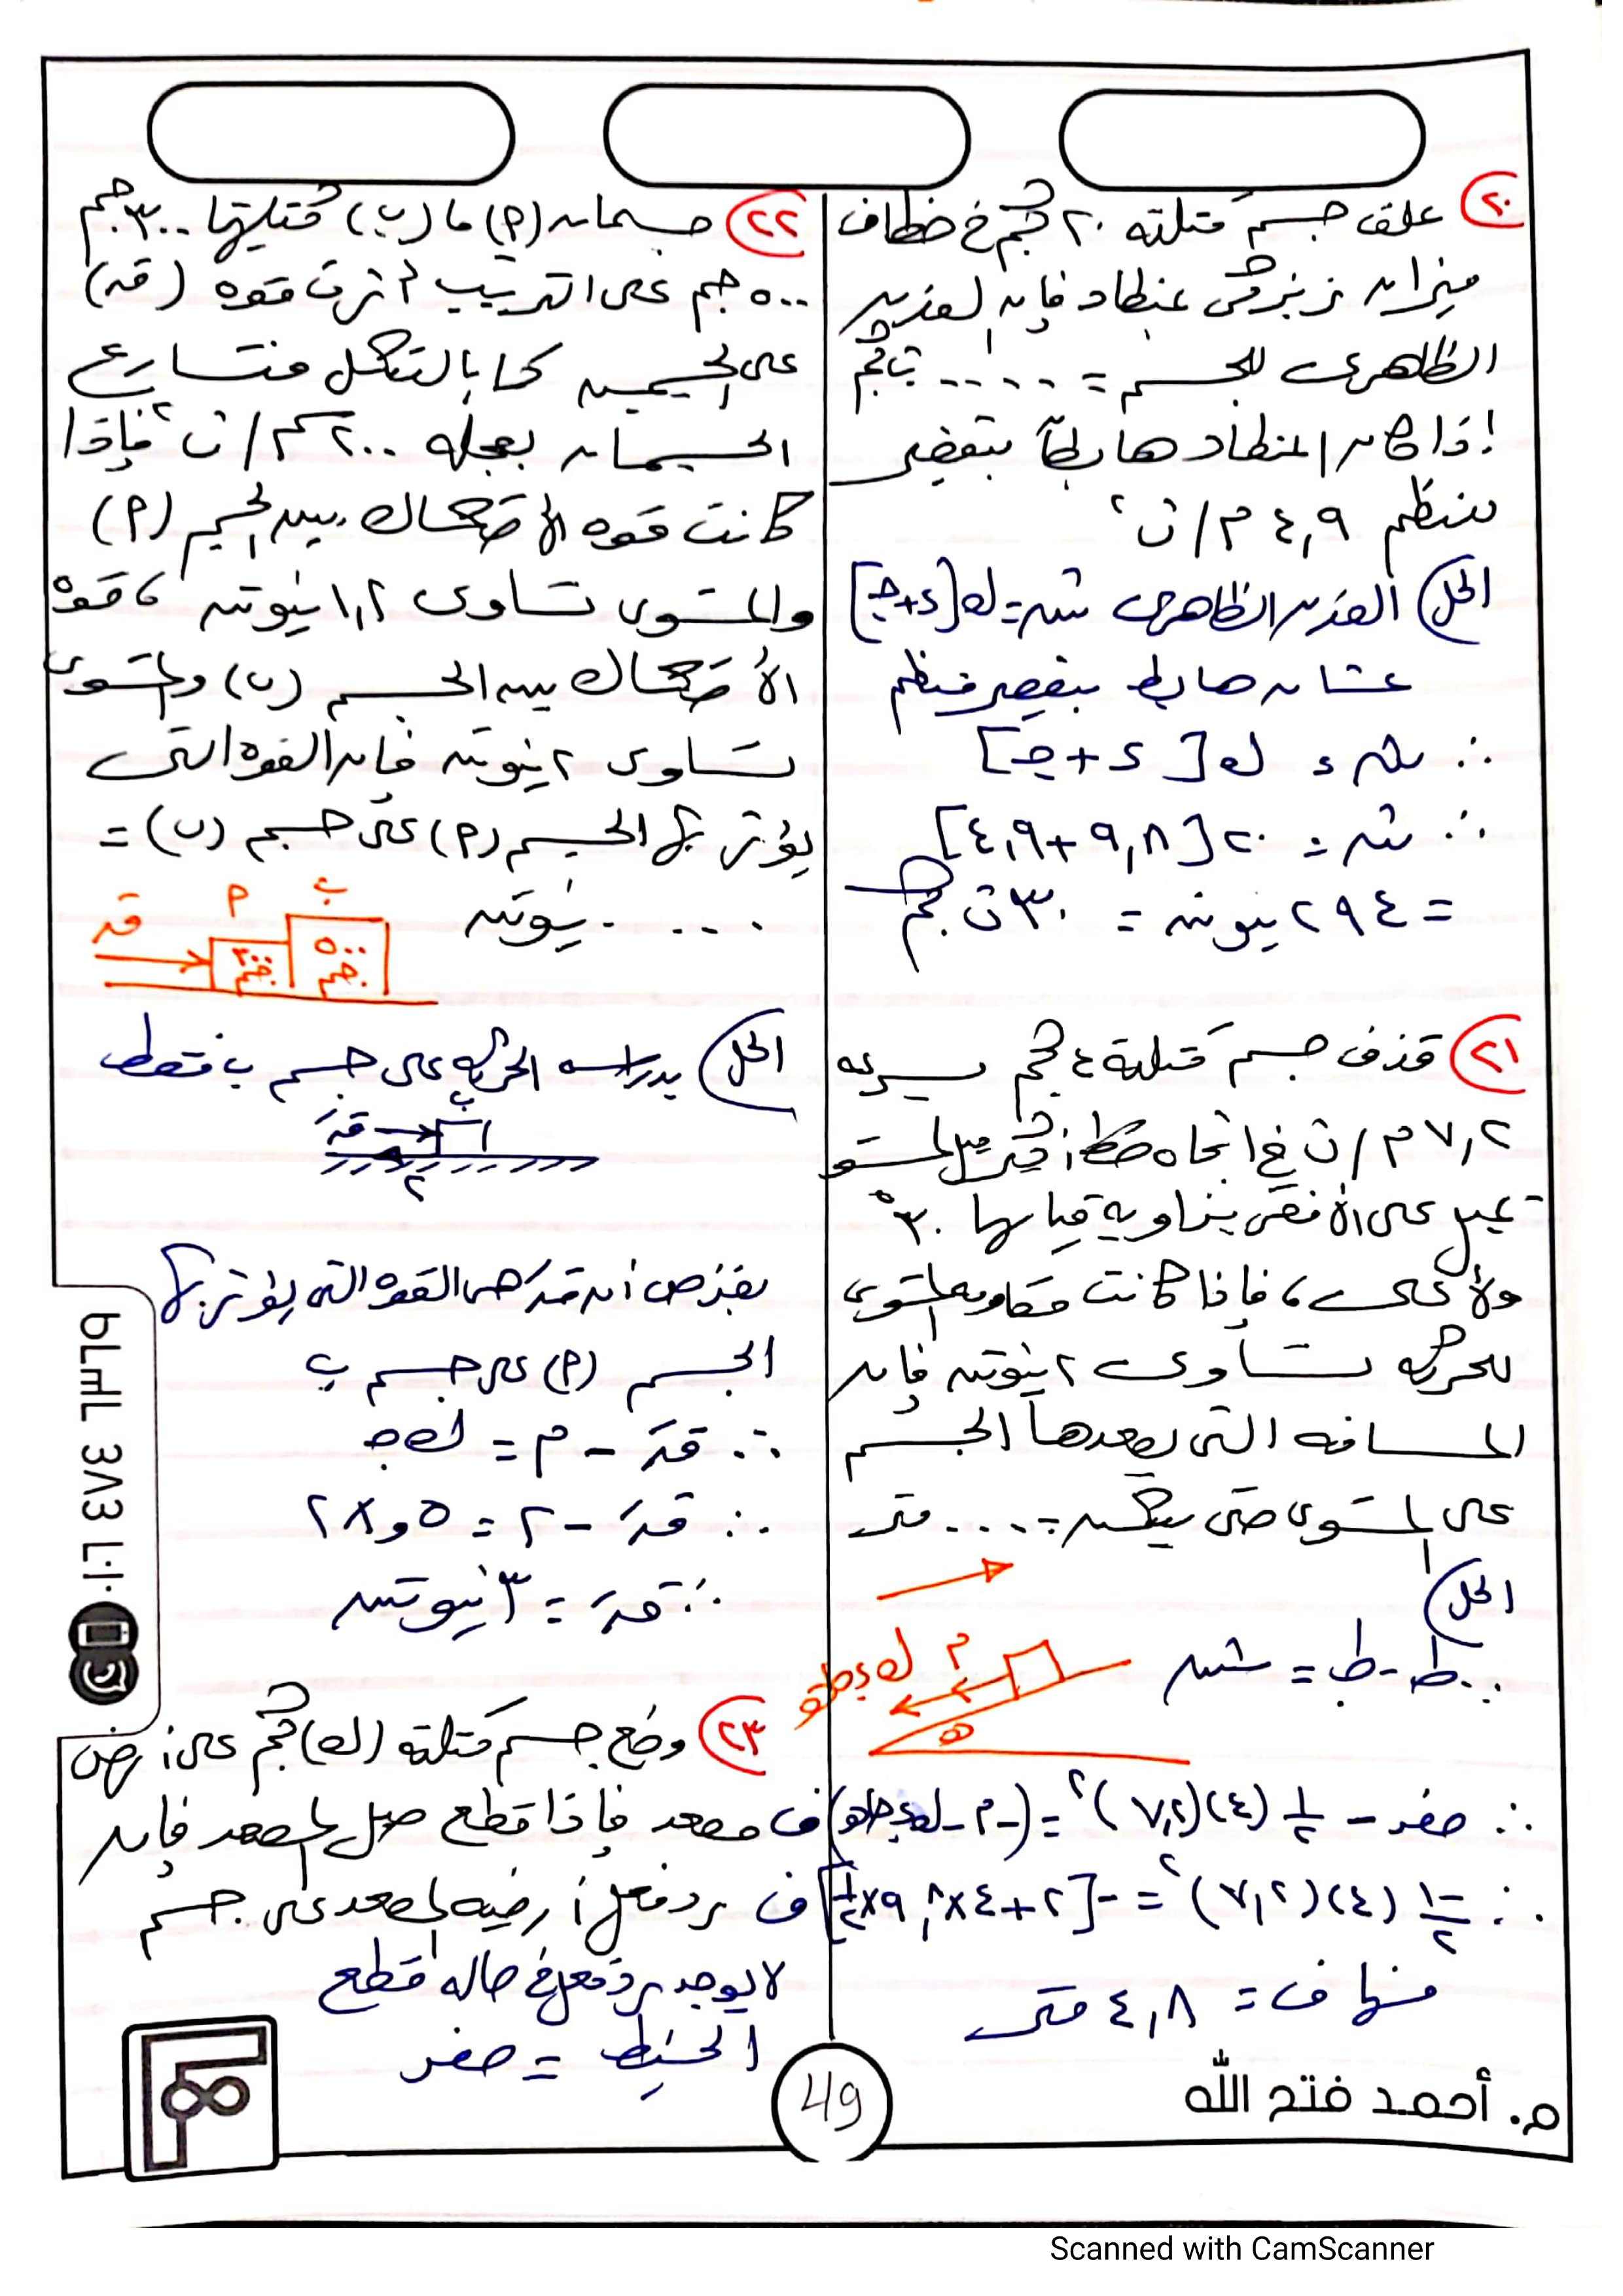 ٢٠ علق جسم كتلته ٢٠ كجم في خطاف
ميزان زنبركي بمنطاد فإن الوزن
الظاهرى للجسم = .... ث كجم
إذا كان المنطاد هابطاً بتقصير
منتظم ٤,٩ م/ث٢
الحل الوزن الظاهرى ش = ك[د+ج]
عشان هابط بتقصير منتظم
∴ ش = ك[د + ج]
∴ ش = ٢٠[٩,٨+٤,٩]
= ٢٩٤ نيوتن = ٣٠ ث كجم
٢١ قذف جسم كتلته ٤ كجم بسرعه
٧,٢ م/ث في اتجاه خط أكبر ميل لمستو
يميل على الأفقى بزاوية قياسها ٣٠°
ولأعلى، فإذا كانت مقاومه المستوى
للحركه تساوى ٢ نيوتن فإن
المسافه التى يصعدها الجسم
على المستوى حتى يسكن = .... متر
الحل
∴ ط - ط. = ش
م ك د حاهـ
هـ
∴ صفر - ١/٢ (٤)(٧,٢)٢ = (-م - ك د حاهـ) ف
∴ -١/٢ (٤)(٧,٢)٢ = -[٢+٤×٩,٨×١/٢] ف
منها ف = ٤,٨ متر
٢٢ جسمان (أ) ، (ب) كتليتها ٣٠٠ جم
٥٠٠ جم على الترتيب أثرت قوه (قـ)
على الجسمين كما بالشكل فتسارع
الجسمان بعجله ٢٠٠ سم/ث٢ فإذا
كانت قوه الأحتكاك بين الجسم (أ)
والمستوى تساوى ١,٢ نيوتن ، قوه
الأحتكاك بين الجسم (ب) والمستوى
تساوى ٢ نيوتن فإن القوه التى
يؤثر بها الجسم (أ) على جسم (ب) =
.... نيوتن
قـ أ ب
٣٠٠ جم ٥٠٠ جم
الحل بدراسه الحركه على جسم ب فقط
قـَ ب
٢
بفرض أن قـَ هى القوه التى يؤثر بها
الجسم (أ) على جسم ب
∴ قـَ - م = ك ج
∴ قـَ - ٢ = ٥,٠ × ٢
∴ قـَ = ٣ نيوتن
٢٣ وضع جسم كتلته (ك) كجم على أرض
مصعد فإذا قطع حبل المصعد فإن
رد فعل أرضيه المصعد على جسم
لا يوجد رد فعل في حاله قطع
الخيط = صفر
٠١٠٦ ٤٨٤ ٦٣٦٩
49
م. أحمد فتح الله
Scanned with CamScanner